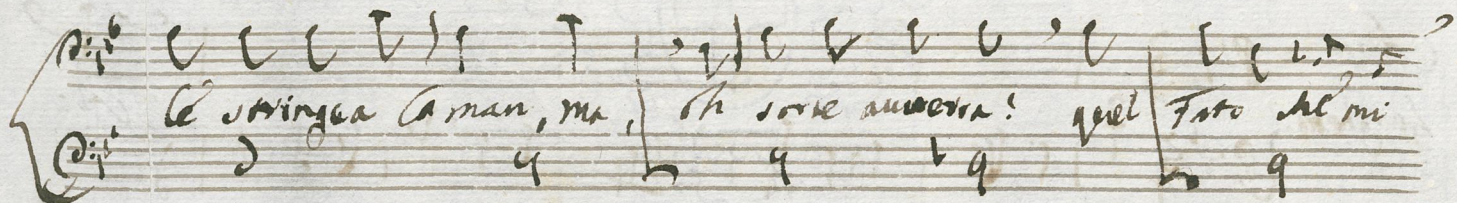 le stringea la man, ma, oh sorte auuersa! quel Fato che mi